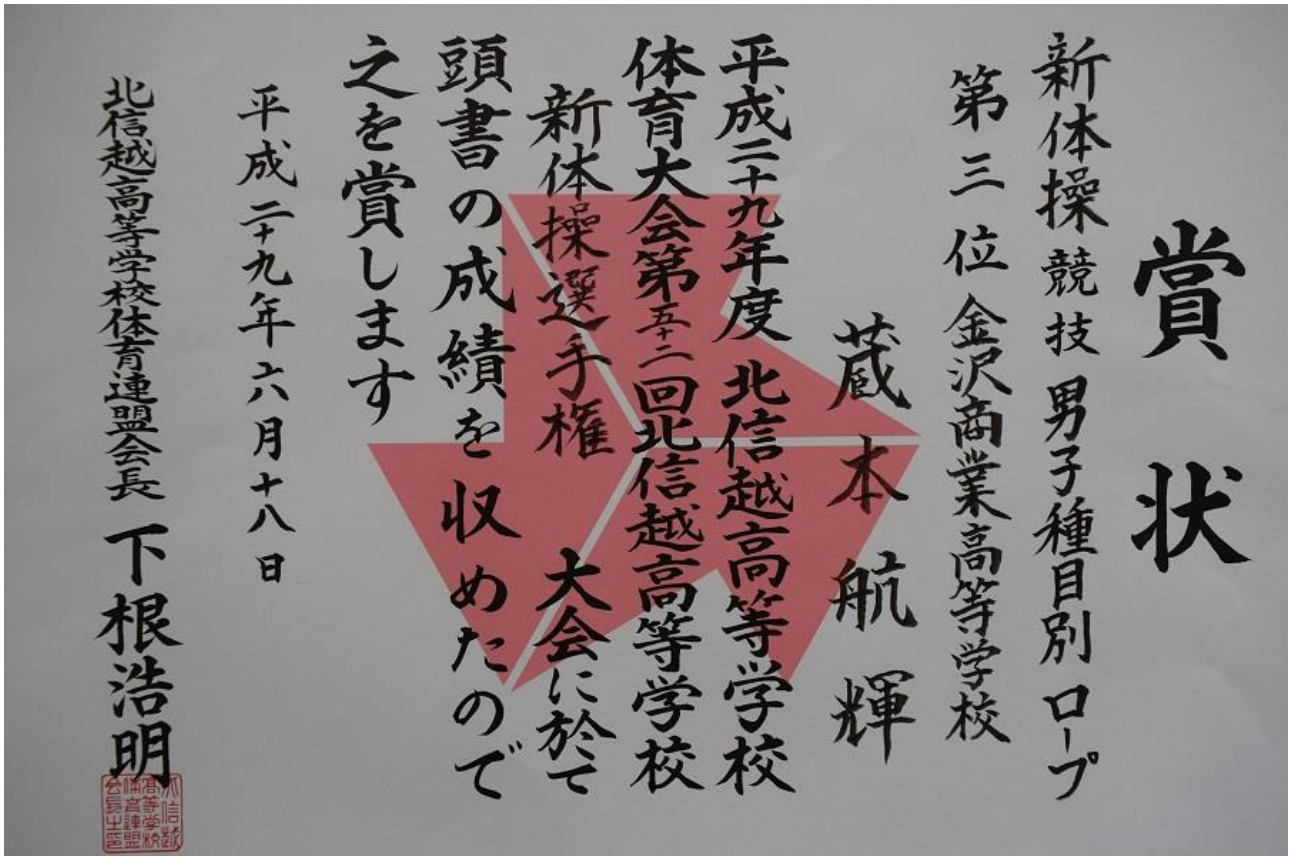 賞状
新体操競技 男子種目別 ロープ
第三位 金沢商業高等学校
蔵本航輝
平成二十九年度 北信越高等学校
体育大会第五十二回北信越高等学校
新体操選手権 大会に於て
頭書の成績を収めたので
之を賞します
平成二十九年六月十八日
北信越高等学校体育連盟会長 下根浩明
北信越
高等学校
体育連盟
会長之印